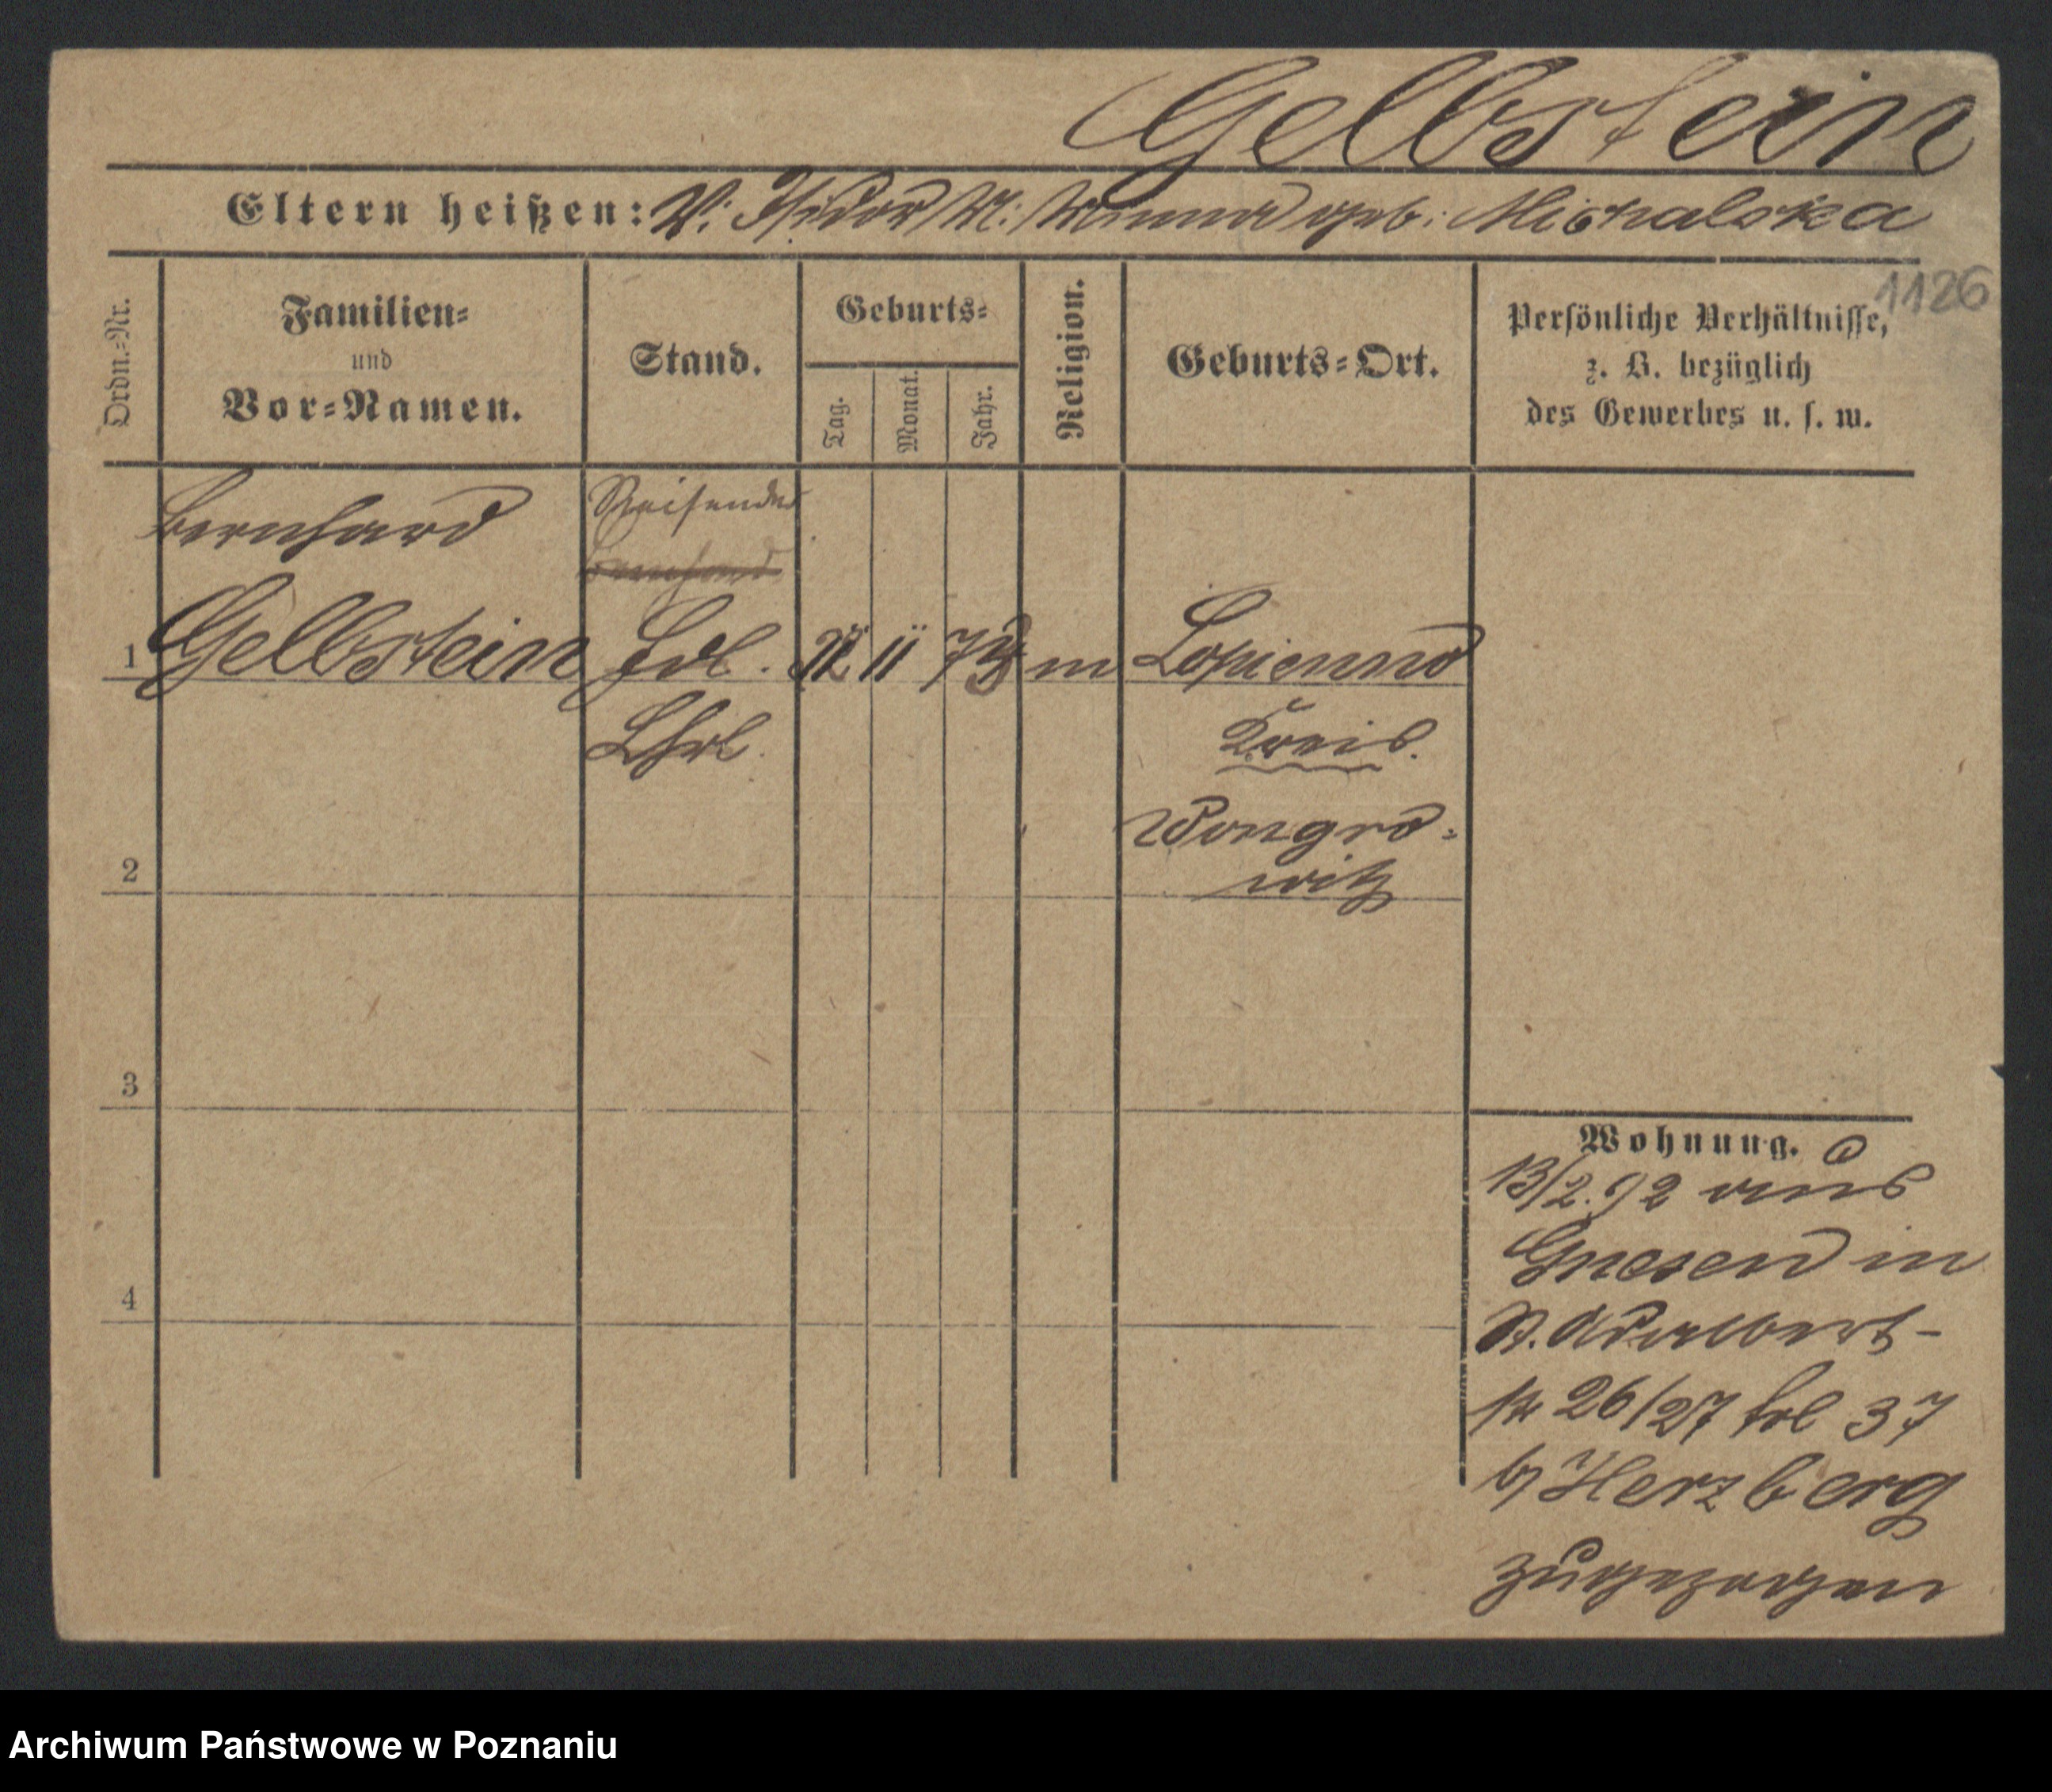 Gelbstein
Eltern heißen: V: Isidor M: Hanna geb: Michalska
1126
Ordn.-Nr.
Familien-
und
Vor-Namen.
Stand.
Geburts-
Tag.
Monat.
Jahr.
Religion.
Geburts-Ort.
Persönliche Verhältnisse,
z. B. bezüglich
des Gewerbes u. s. w.
Bernhard
Reisender
1 Gelbstein 11 73 m Lopienno
Kreis
Wongro-
witz
2
3
4
Wohnung.
13/2.92 aus
Gnesen in
St. Adalbert-
26/27 37
b/ Herzberg
zugezogen
Archiwum Państwowe w Poznaniu